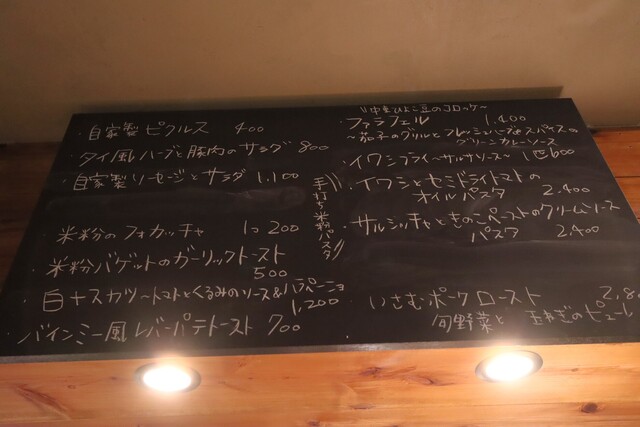 ・自家製ピクルス 400
・タイ風ハーブと豚肉のサラダ 800
・自家製ソーセージとサラダ 1,100
・米粉のフォカッチャ 1コ 200
・米粉バゲットのガーリックトースト
500
・白ナスカツ〜トマトとくるみのソース&ハラペーニョ
1,200
・バインミー風レバーパテトースト 700
手打ち米粉パスタ
中東ひよこ豆のコロッケ〜
・ファラフェル 1,400
・茄子のグリルとフレッシュハーブ&スパイスの
グリーンカレーソース
・イワシフライ〜サルサソース〜 1匹600
・イワシとセミドライトマトの
オイルパスタ 2,400
・サルシッチャときのこペーストのクリームソース
パスタ 2,400
・いさむポークロースト
旬野菜と玉ねぎのピューレ